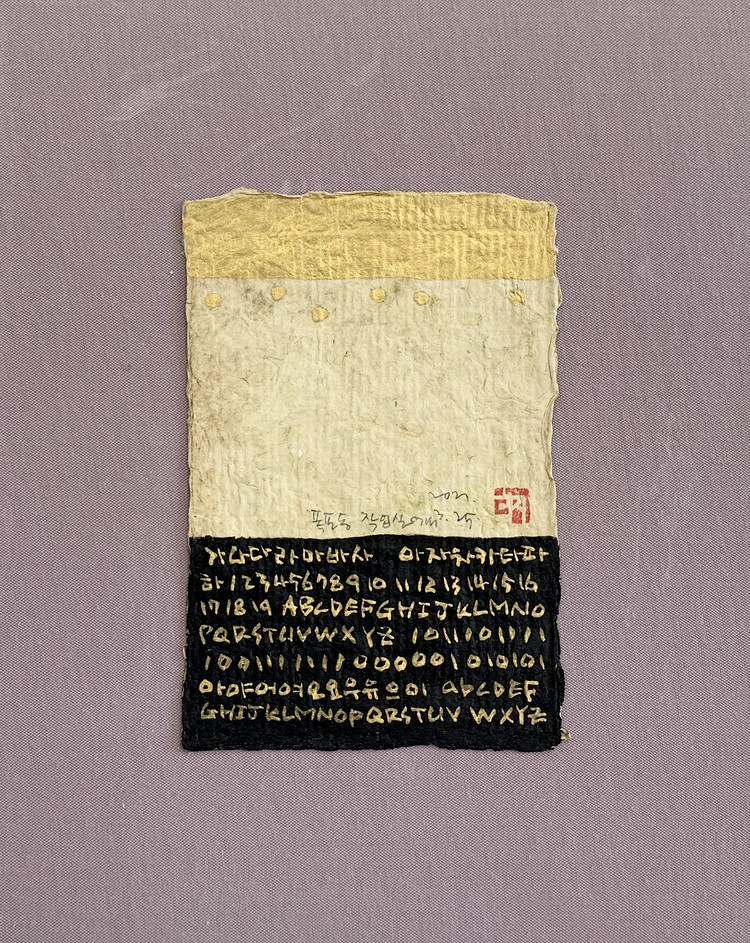 2021.
작업실에서
가나다라마바사 아자차카타파
하12345678910 11 12 13 14 15 16
17 18 19 ABCDEFGHIJKLMNO
PQRSTUVWXYZ 1011101111
10011111110000001010101
아야어여오요우유으이 abCDEF
GHIJKLMNOPQRSTUV WXYZ